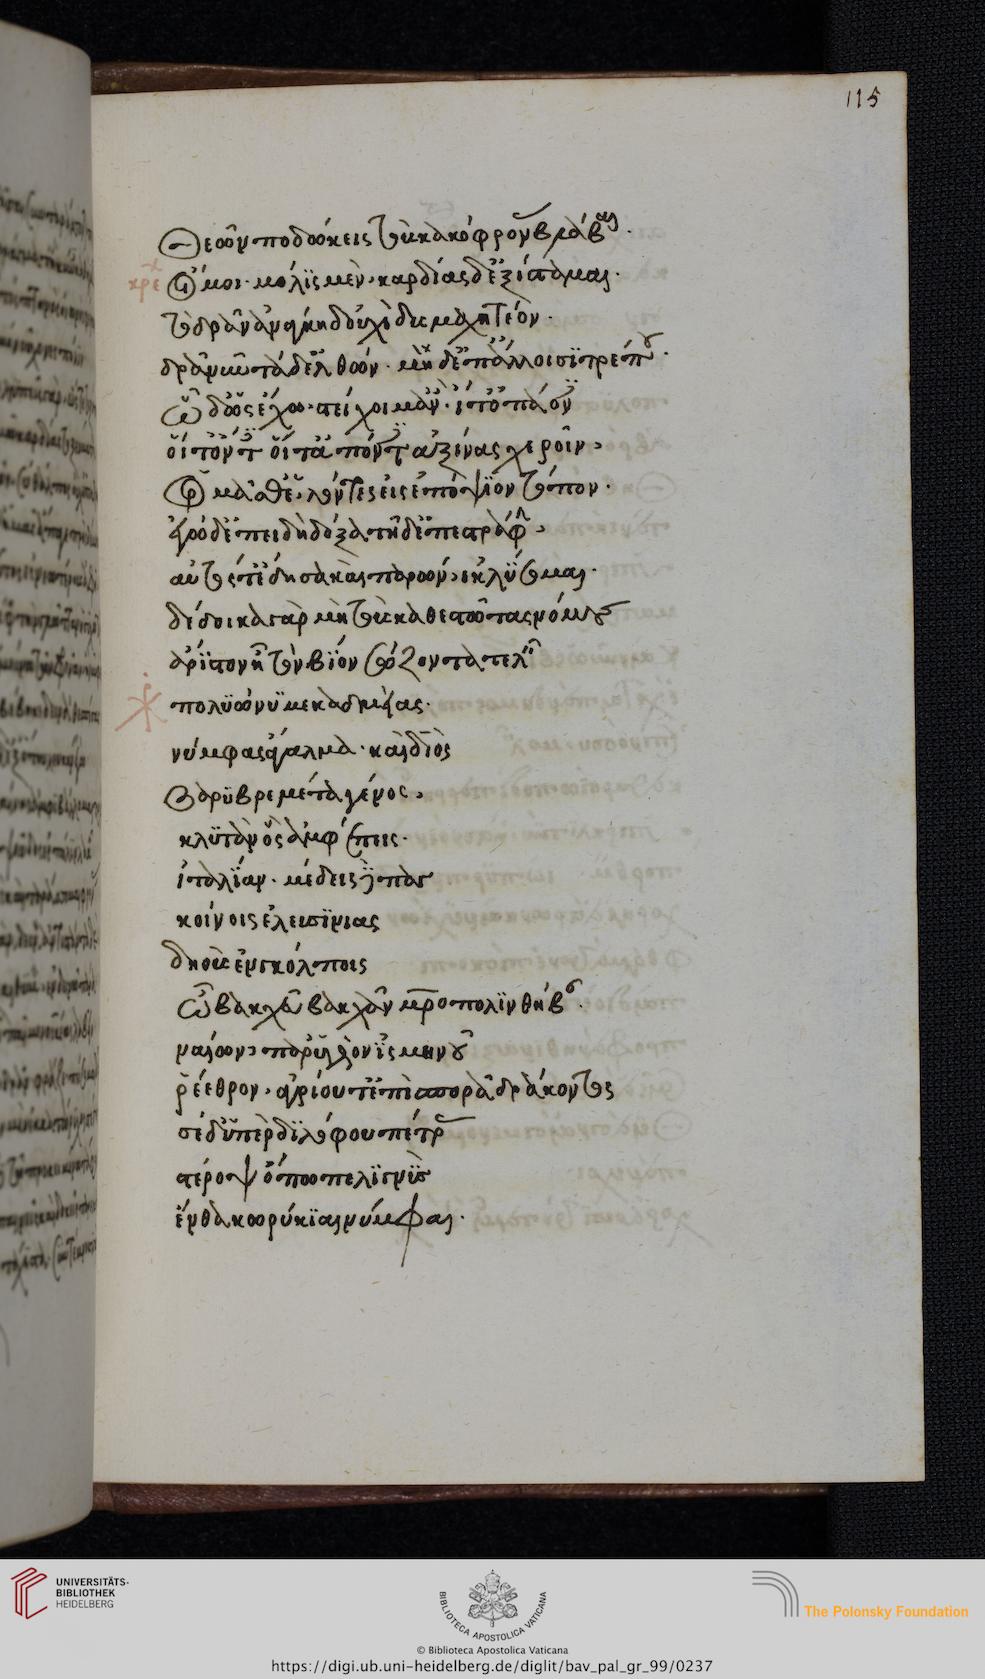 115
Θεῶν ποδώκεις τοὺς κακόφρονας βλάβαι.
κρέ
Ὤμοι· μόλις μὲν, καρδίας δ' ἐξίσταμαι
τὸ δρᾶν· ἀνάγκῃ δ' οὐχὶ δυσμαχητέον.
δρᾶ νῦν τάδ' ἐλθών· μὴ δ' ἐπ' ἄλλοισι τρέπε.
ὧδ' ὡς ἔχω στείχοιμ' ἄν· ἴτ' ἴτ' ὀπάονες
οἵ τ' ὄντες οἵ τ' ἀπόντες ἀξίνας χεροῖν,
ὁρμᾶσθ' ἑλόντες εἰς ἐπόψιον τόπον.
ἐγὼ δ' ἐπειδὴ δόξα τῇδ' ἐπεστράφη,
αὐτός τ' ἔδησα καὶ παρὼν ἐκλύσομαι.
δέδοικα γὰρ μὴ τοὺς καθεστῶτας νόμους
ἄριστον ᾖ τὸν βίον σώζοντα τελεῖν
πολυώνυμε καδμείας
νύμφας ἄγαλμα· καὶ διὸς
βαρυβρεμέτα γένος,
κλυτὰν ὃς ἀμφέπεις
ἰταλίαν· μέδεις δὲ παγ
κοίνοις ἐλευσινίας
δηοῦς ἐν κόλποις
ὦ βακχεῦ βακχᾶν μητρόπολιν θήβαν
ναίων, παρ' ὑγρὸν ἰσμηνοῦ
ῥέεθρον, ἀγρίου τ' ἐπὶ σπορᾷ δράκοντος
σὲ δ' ὑπὲρ διλόφου πέτρας
στέροψ ὄπωπε λιγνὺς
ἔνθα κωρύκιαι νύμφαι
UNIVERSITÄTS-
BIBLIOTHEK
HEIDELBERG
BIBLIOTECA APOSTOLICA VATICANA
The Polonsky Foundation
© Biblioteca Apostolica Vaticana
https://digi.ub.uni-heidelberg.de/diglit/bav_pal_gr_99/0237